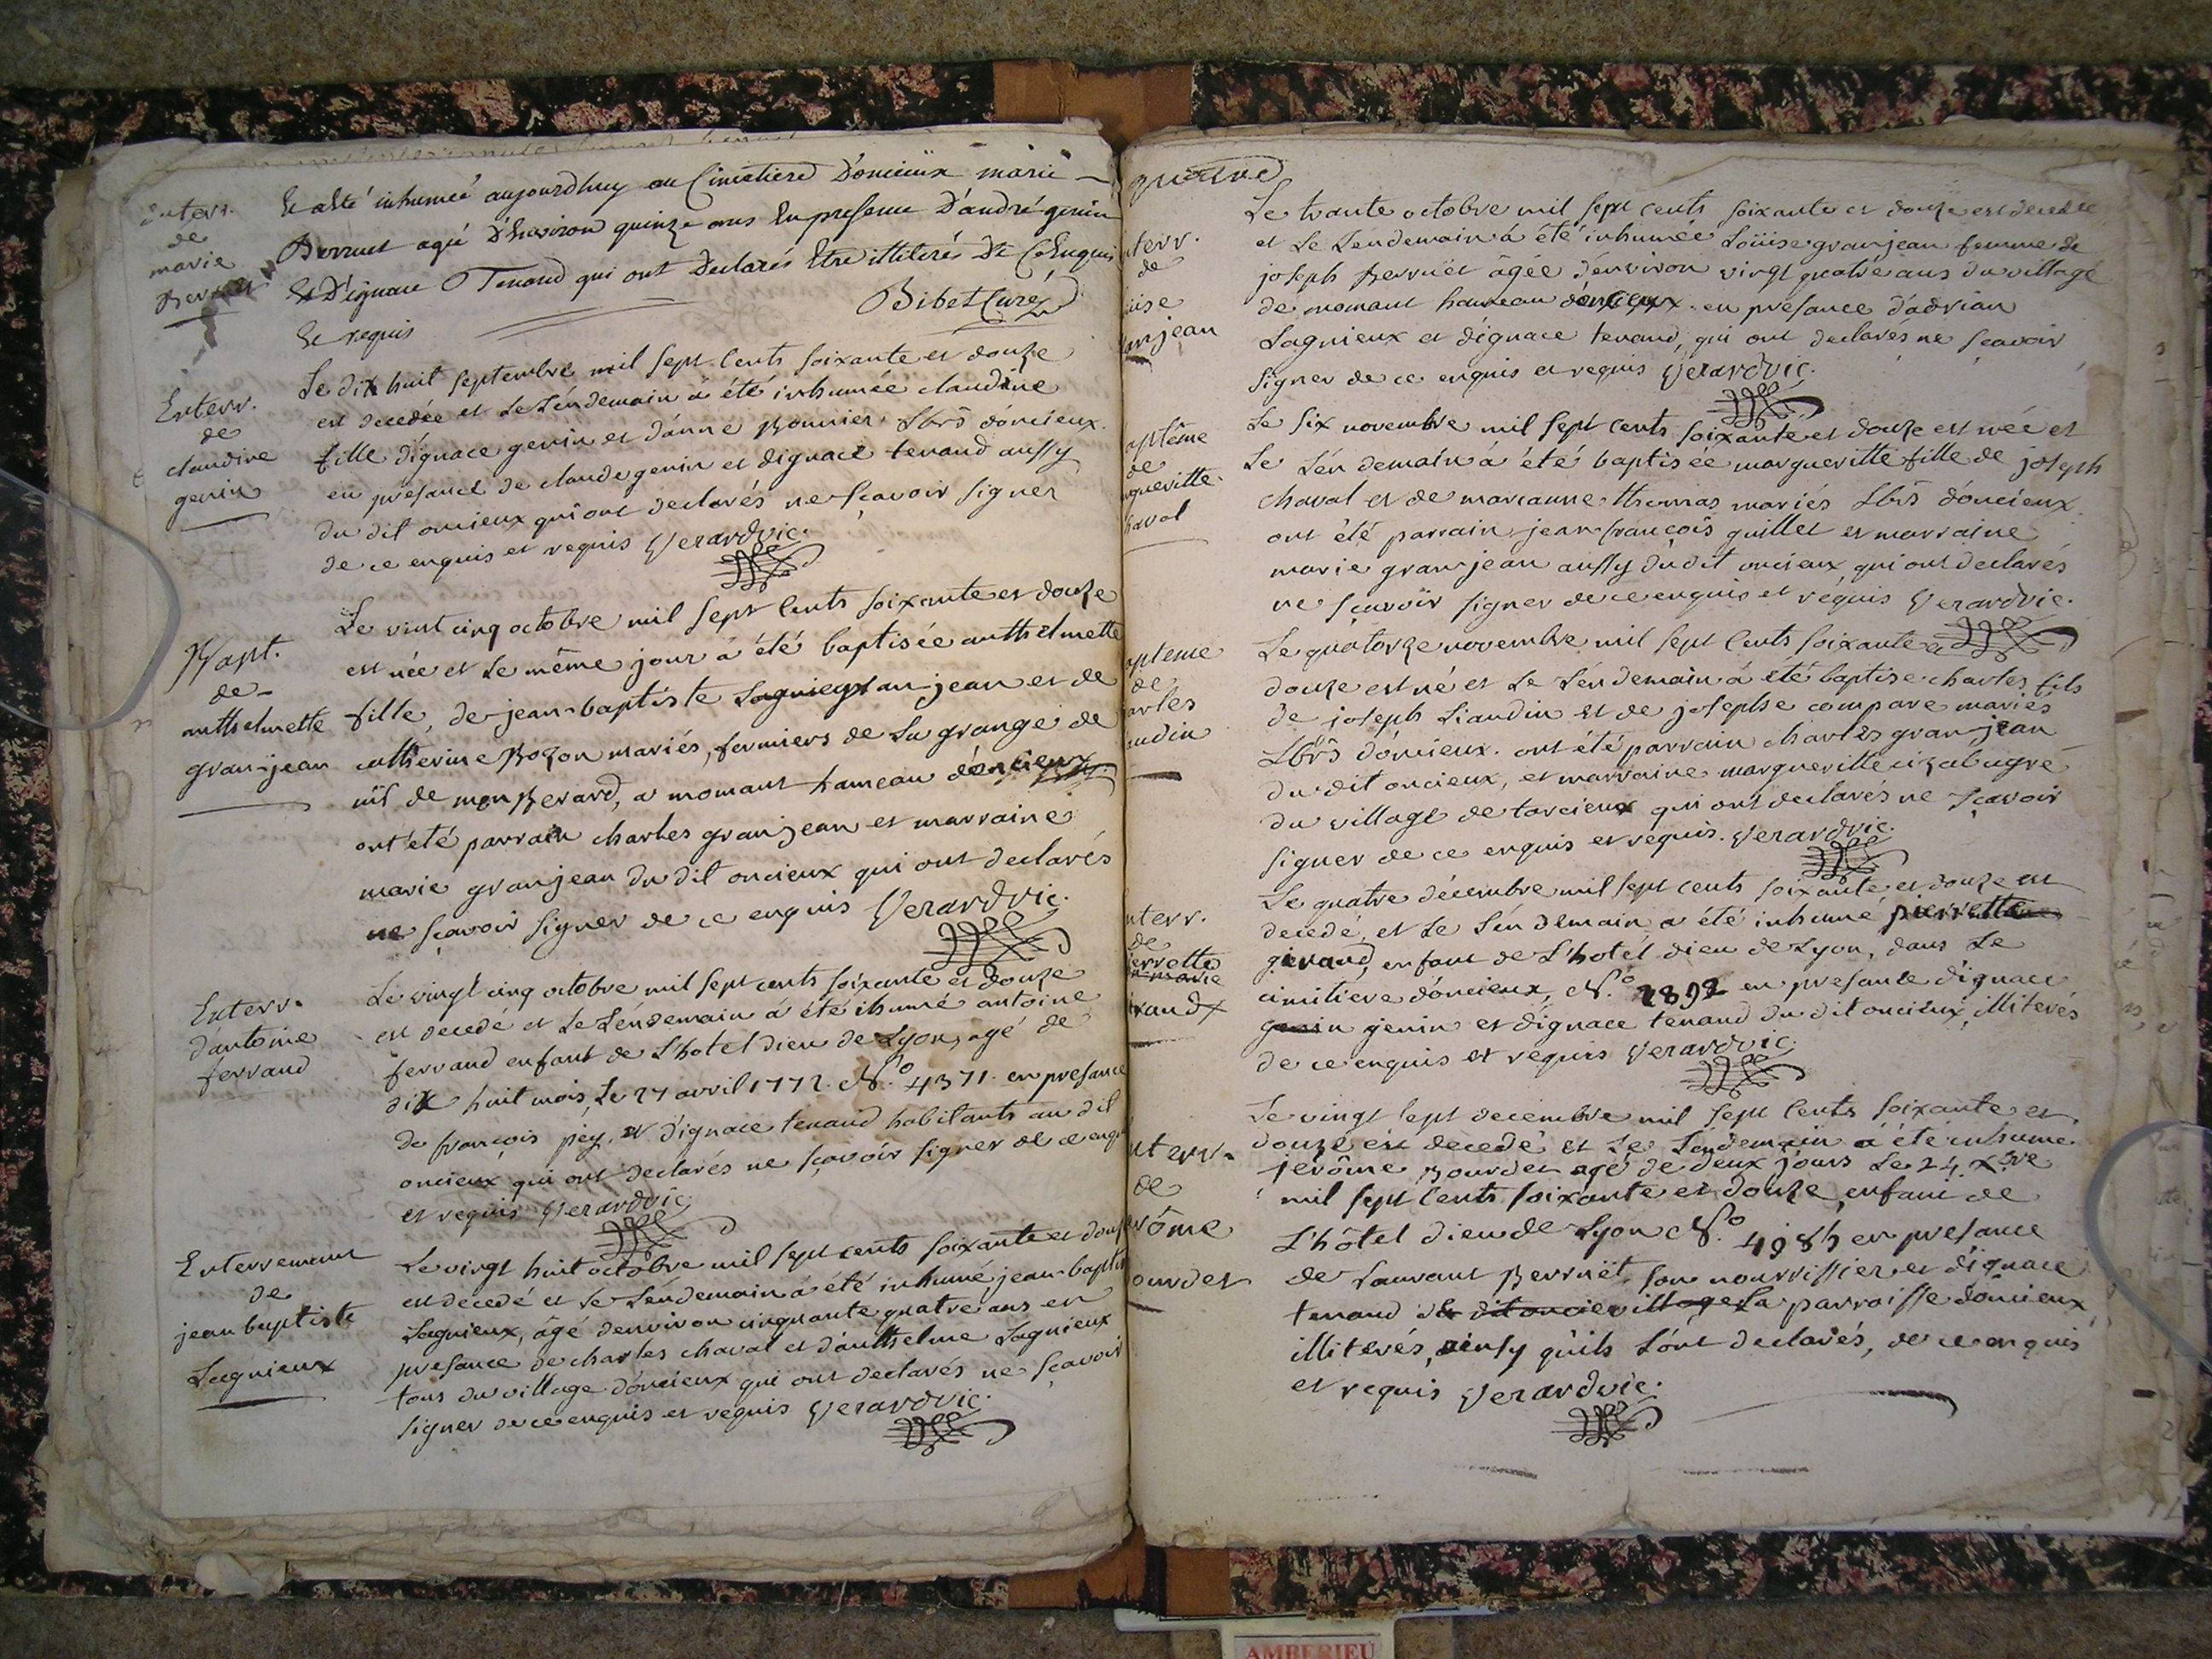 Enterr.
de
marie
Berruet
Et a été inhumeé aujourdhuy au Cimetiere D'oncieux marie
Berruet agée D'Environ quinze ans En presence D'andré genin
Et D'ignace Tenand qui ont Declarés Etre illiterés De Ce Enquis
Et requis
Bibet Curé
Enterr.
de
claudine
genin
Le dix huit septembre mil sept cents soixante et douze
est decedée et Le Léndemain á été inhumée claudine
fille d'ignace genin et d'anne Bonnier Lbrs d'oncieux
en presance de claude genin et dignace tenand aussy
du dit oncieux qui ont declarés ne sçavoir signer
de ce enquis et requis Verardvic.
Bapt.
de
anthelmette
gran-jean
Le vint cinq octobre mil sept cents soixante et douze
est née et Le même jour á été baptisée anthelmette
fille, de jean-baptiste gran-jean et de
catherine Bozon mariés, fermiers de La grange de
de mon Berard, a momant hameau d'oncieux
ont été parrain charles granjean et marraine
marie granjean du dit oncieux qui ont declarés
ne sçavoir signer de ce enquis Verardvic.
Enterr.
dantoine
ferrand
Le vingt cinq octobre mil sept cents soixante et douze
est decedé et Le Léndemain á été ihumé antoine
ferrand enfant de L'hotel dieu de Lyon, agé de
dix huit mois, Le 27 avril 1772. N.o 4371. en presance
de françois pey, et d'ignace tenand habitants au dit
oncieux qui ont declarés ne sçavoir signer de ce enqu
et requis Verardvic.
Enterrement
de
jean baptiste
Lagnieux
Le vingt huit octobre mil sept cents soixante et douze
est decedé et Le Léndemain á été inhumé jean-baptis
Lagnieux, âgé denviron cinquante quatre ans en
presance de charles chaval et d'anthelme Lagnieux
tous du village d'oncieux qui ont declarés ne sçavoir
signer de ce enquis et requis Verardvic.
quatre
nterr.
de
uise
anjean
Le trante octobre mil sept cents soixante et douze est decedée
et Le Léndemain á été inhumée Loüise granjean femme de
joseph Berruet âgée d'environ vingt quatre ans du village
de momant hameau d'oncieux. en présance d'adrian
Lagnieux et d'ignace tenand, qui ont declarés ne sçavoir
signer de ce enquis et requis Verardvic.
aptême
de
rgueritte
haval
Le six novembre mil sept cents soixante et douze est née et
Le Léndemain á été baptisée margueritte fille de joseph
chaval et de marianne thomas mariés Lbrs d'oncieux.
ont été parrain jean-françois guillet et marraine
marie gran-jean aussy du dit oncieux qui ont declarés
ne sçavoir signer de ce enquis et requis Verardvic.
apteme
de
arles
audin
Le quatorze novembre mil sept cents soixante et
douze est né et Le Léndemain á été baptise charles fils
de joseph Liaudin et de josephe compare mariés
Lbrs d'oncieux. ont été parrain charles gran-jean
du dit oncieux, et marraine margueritte
du village de torcieux qui ont declarés ne sçavoir
signer de ce enquis et requis. Verardvic.
nterr.
de
ierrette
marie
irand
Le quatre décembre mil sept cents soixante et douze est
decedé, et Le Léndemain a été inhumé pierrette
girand, enfant de L'hotel dieu de Lyon, dans Le
cimitiere d'oncieux, N.o 2892 en presance d'ignace
genin jenin et dignace tenand du dit oncieux, illiterés
de ce enquis et requis Verardvic.
nterr.
de
rôme
ourdet
Le vingt sept decembre mil sept cents soixante et
douze est decedé et Le Lendemain á été inhumé
jerôme Bourdet agé de deux jours Le 24 xbre
mil sept cents soixante et douze enfant de
L'hôtel dieu de Lyon N.o 4985 en presance
de Laurant Berruët son nourrissier et d'ignace
tenand de dit oncie village La parroisse d'oncieux
illiterés, ainsy qu'ils L'ont declarés, de ce enquis
et requis Verardvic.
AMBERIEU